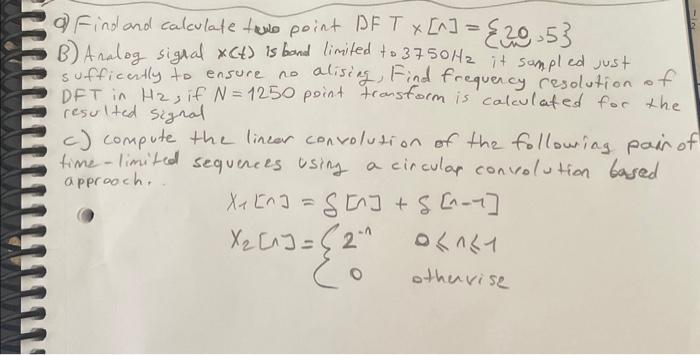 a) Find and calculate two point DFT x[n] = {20, 5}
B) Analog signal x(t) is band limited to 3750Hz it sampled just
sufficently to ensure no alising, Find frequency resolution of
DFT in Hz, if N = 1250 point transform is calculated for the
resulted signal
c) compute the linear convolution of the following pair of
time-limited sequences using a circular convolution based
approach.
X1[n] = δ[n] + δ[n-1]
X2[n] = { 2^-n 0≤n≤1
0 otherwise